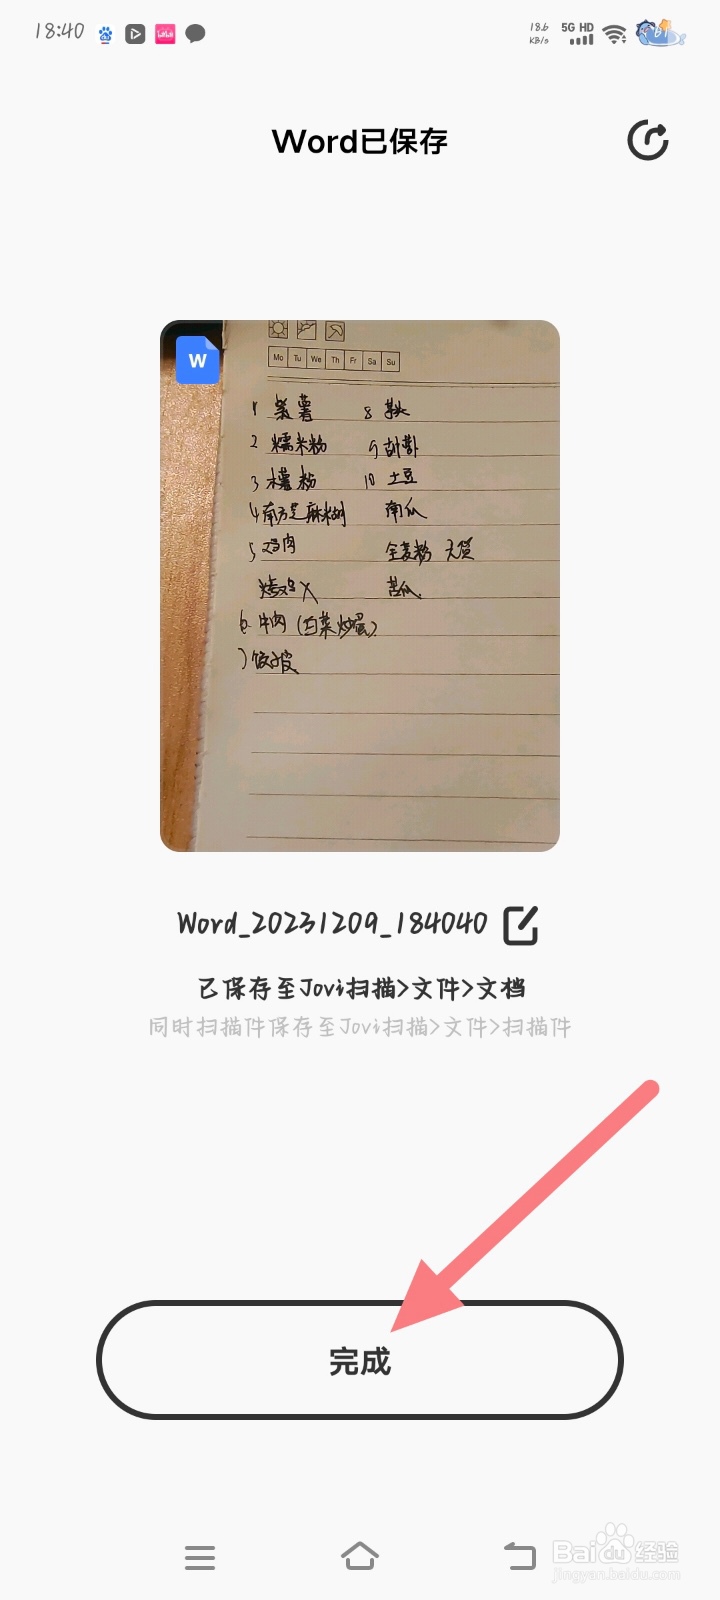 18:40
18.6 KB/s 5G HD 61
Word已保存
W
Mo Tu We Th Fr Sa Su
1 紫薯 8 芋头
2 糯米粉 9 胡萝卜
3 木薯粉 10 土豆
4 南方芝麻糊 南瓜
5 鸡肉 全麦粉 无货
烤鸡X 苦瓜
6 牛肉 (白菜炒蛋)
7 饺子皮
Word_20231209_184040
已保存至Jovi扫描>文件>文档
同时扫描件保存至Jovi扫描>文件>扫描件
完成
Baidu经验
jingyan.baidu.com